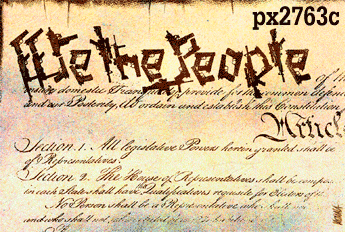 px2763c
We the People
of the
insure domestic Tranquility, provide for the common defence
and our Posterity, do ordain and establish this Constitution
Article
Section 1. All legislative Powers herein granted shall be
of Representatives.
Section 2. The House of Representatives shall be compo
in each State shall have Qualifications requisite for Electors of the
No Person shall be a Representative who shall not
and who shall not, when elected